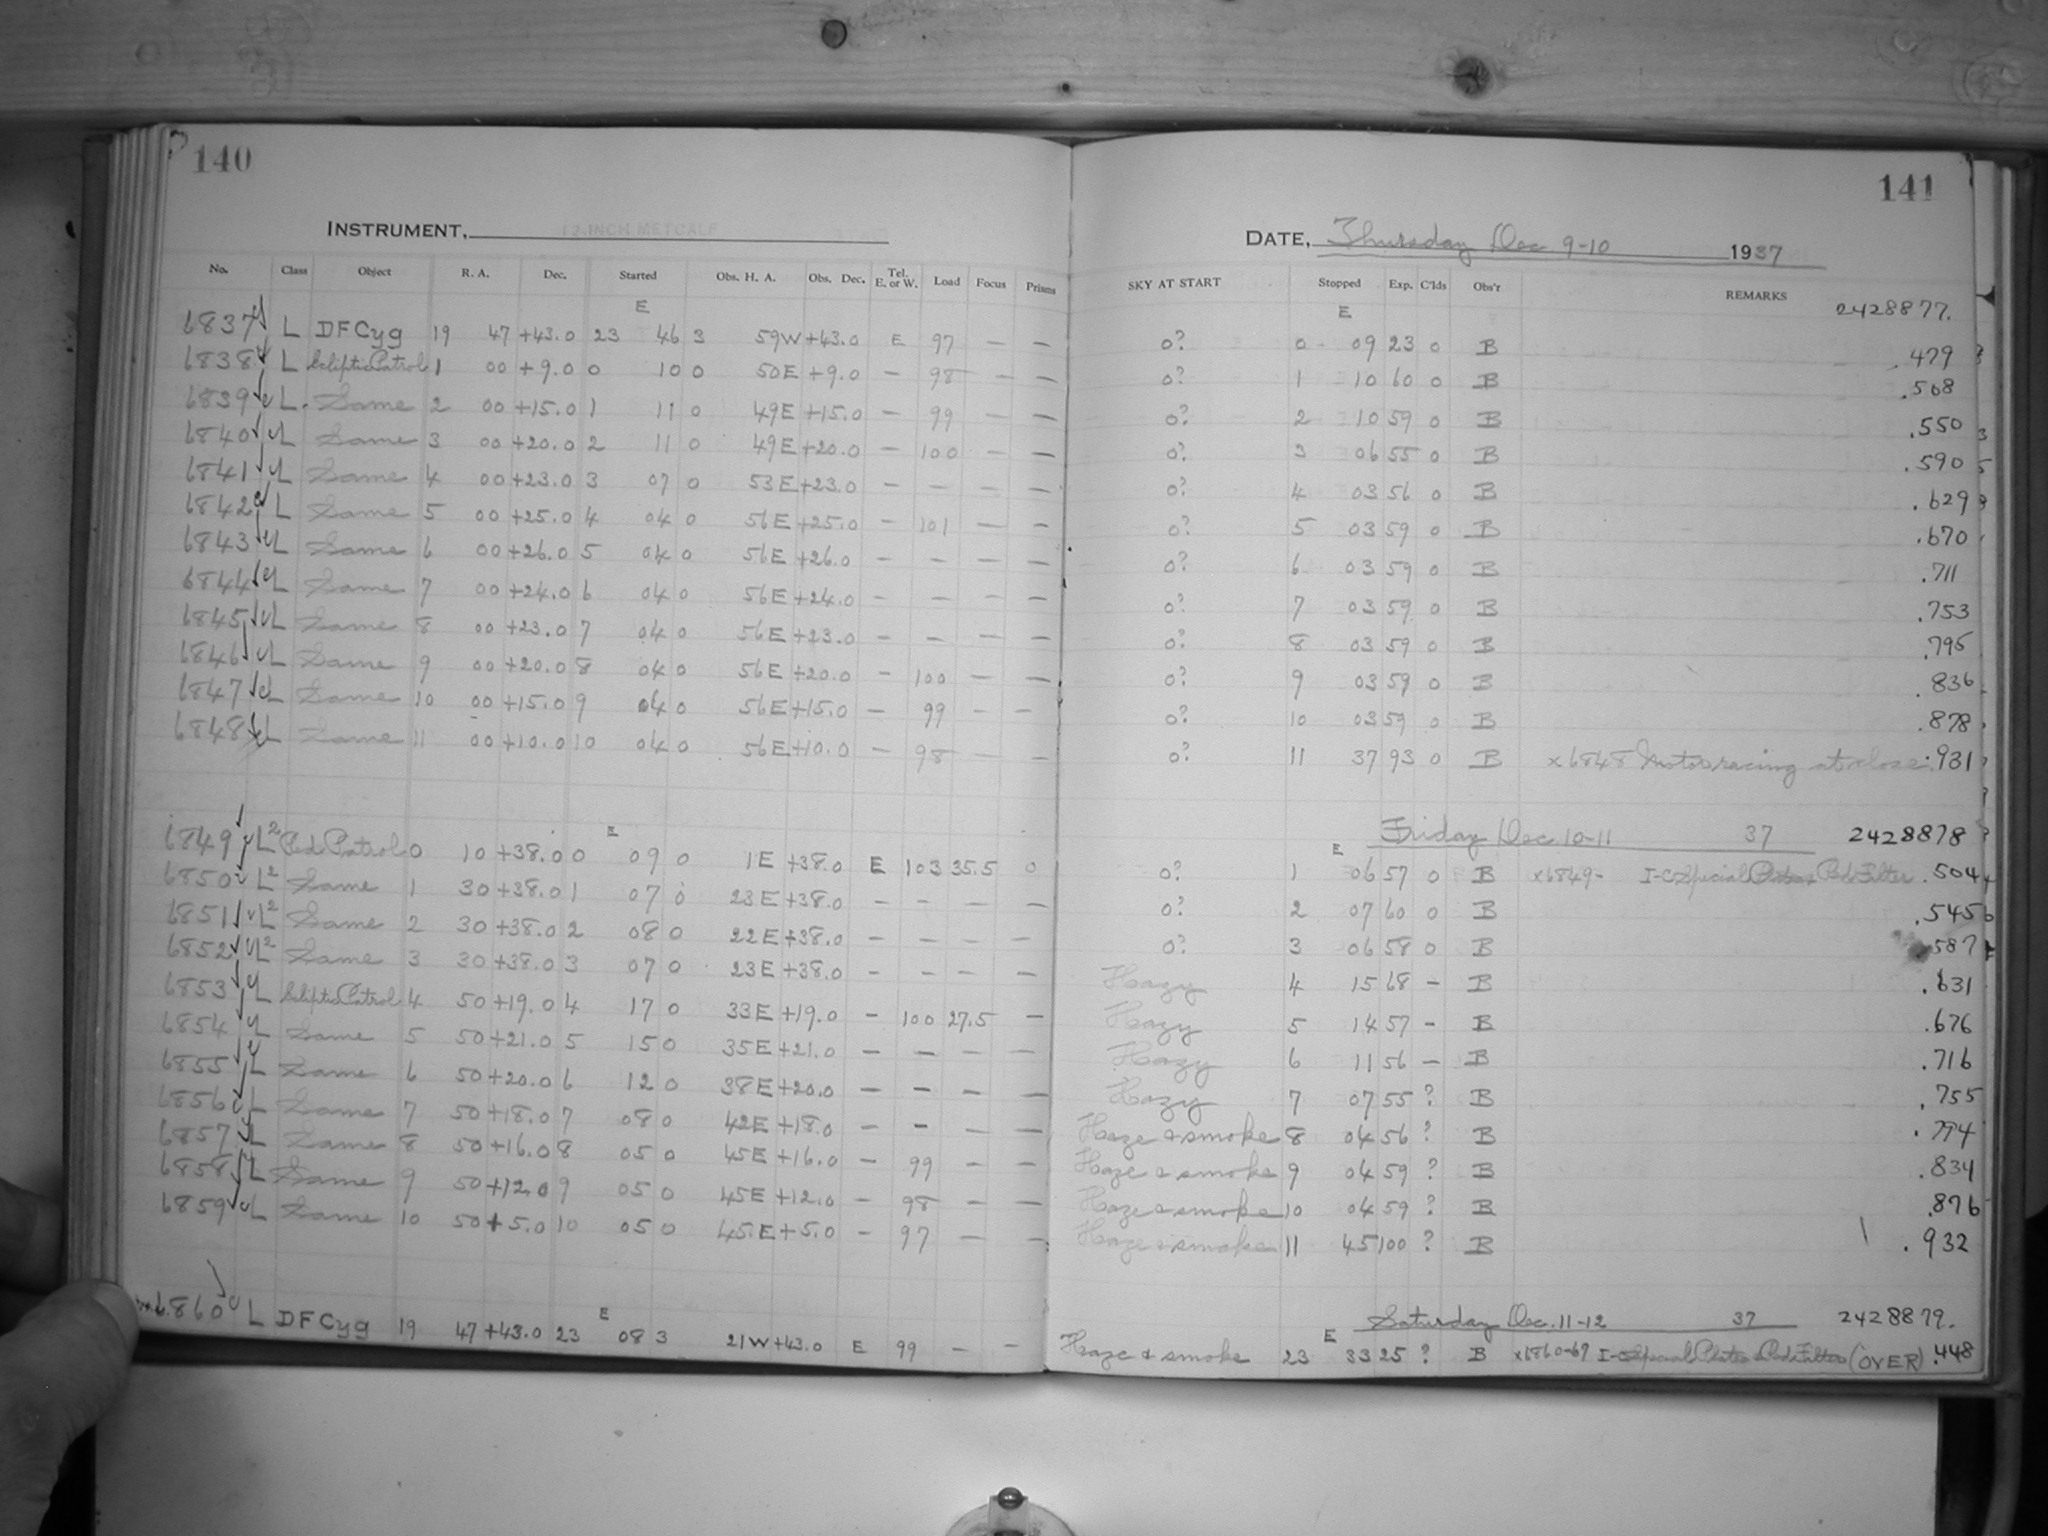 140
INSTRUMENT, 12-INCH METCALF
No. Class Object R. A. Dec. Started Obs. H. A. Obs. Dec. Tel. E. or W. Load Focus Prisms
E
6837 L DFCyg 19 47 +43.0 23 46 3 59W +43.0 E 97 — —
6838 L Ecliptic Patrol 1 00 +9.0 0 10 0 50E +9.0 — 98 — —
6839 L. Same 2 00 +15.0 1 11 0 49E +15.0 — 99 — —
6840 L Same 3 00 +20.0 2 11 0 49E +20.0 — 100 — —
6841 L Same 4 00 +23.0 3 07 0 53E +23.0 — — — —
6842 L Same 5 00 +25.0 4 04 0 56E +25.0 — 101 — —
6843 L Same 6 00 +26.0 5 04 0 56E +26.0 — — — —
6844 L Same 7 00 +24.0 6 04 0 56E +24.0 — — — —
6845 L Same 8 00 +23.0 7 04 0 56E +23.0 — — — —
6846 L Same 9 00 +20.0 8 04 0 56E +20.0 — 100 — —
6847 L Same 10 00 +15.0 9 04 0 56E +15.0 — 99 — —
6848 L Same 11 00 +10.0 10 04 0 56E +10.0 — 98 — —
E
6849 L² Red Patrol 0 10 +38.0 0 09 0 1E +38.0 E 103 35.5 0
6850 L² Same 1 30 +38.0 1 07 0 23E +38.0 — — — —
6851 L² Same 2 30 +38.0 2 08 0 22E +38.0 — — — —
6852 L² Same 3 30 +38.0 3 07 0 23E +38.0 — — — —
6853 L Ecliptic Patrol 4 50 +19.0 4 17 0 33E +19.0 — 100 27.5 —
6854 L Same 5 50 +21.0 5 15 0 35E +21.0 — — — —
6855 L Same 6 50 +20.0 6 12 0 38E +20.0 — — — —
6856 L Same 7 50 +18.0 7 08 0 42E +18.0 — — — —
6857 L Same 8 50 +16.0 8 05 0 45E +16.0 — 99 — —
6858 L Same 9 50 +12.0 9 05 0 45E +12.0 — 98 — —
6859 L Same 10 50 +5.0 10 05 0 45E +5.0 — 97 — —
E
6860 L DFCyg 19 47 +43.0 23 08 3 21W +43.0 E 99 — —
141
DATE, Thursday Dec 9-10 1937
SKY AT START Stopped Exp. C'lds Obs'r REMARKS
E 2428877.
0? 0 09 23 0 B .479
0? 1 10 60 0 B .508
0? 2 10 59 0 B .550
0? 3 06 55 0 B .590
0? 4 03 56 0 B .629
0? 5 03 59 0 B .670
0? 6 03 59 0 B .711
0? 7 03 59 0 B .753
0? 8 03 59 0 B .795
0? 9 03 59 0 B .836
0? 10 03 59 0 B .878
0? 11 37 93 0 B x6848 Motor racing at close .931
Friday Dec. 10-11 37 2428878
E
0? 1 06 57 0 B x6849- I-C Special Plates Red Filter .504
0? 2 07 60 0 B .545
0? 3 06 58 0 B .587
Hazy 4 15 68 — B .631
Hazy 5 14 57 — B .676
Hazy 6 11 56 — B .716
Hazy 7 07 55 ? B .755
Haze & smoke 8 04 56 ? B .794
Haze & smoke 9 04 59 ? B .834
Haze & smoke 10 04 59 ? B .876
Haze & smoke 11 45 100 ? B .932
Saturday Dec. 11-12 37 2428879.
E
Haze & smoke 23 33 25 ? B x6860-67 I-C Special Plates Red Filter (OVER) .448